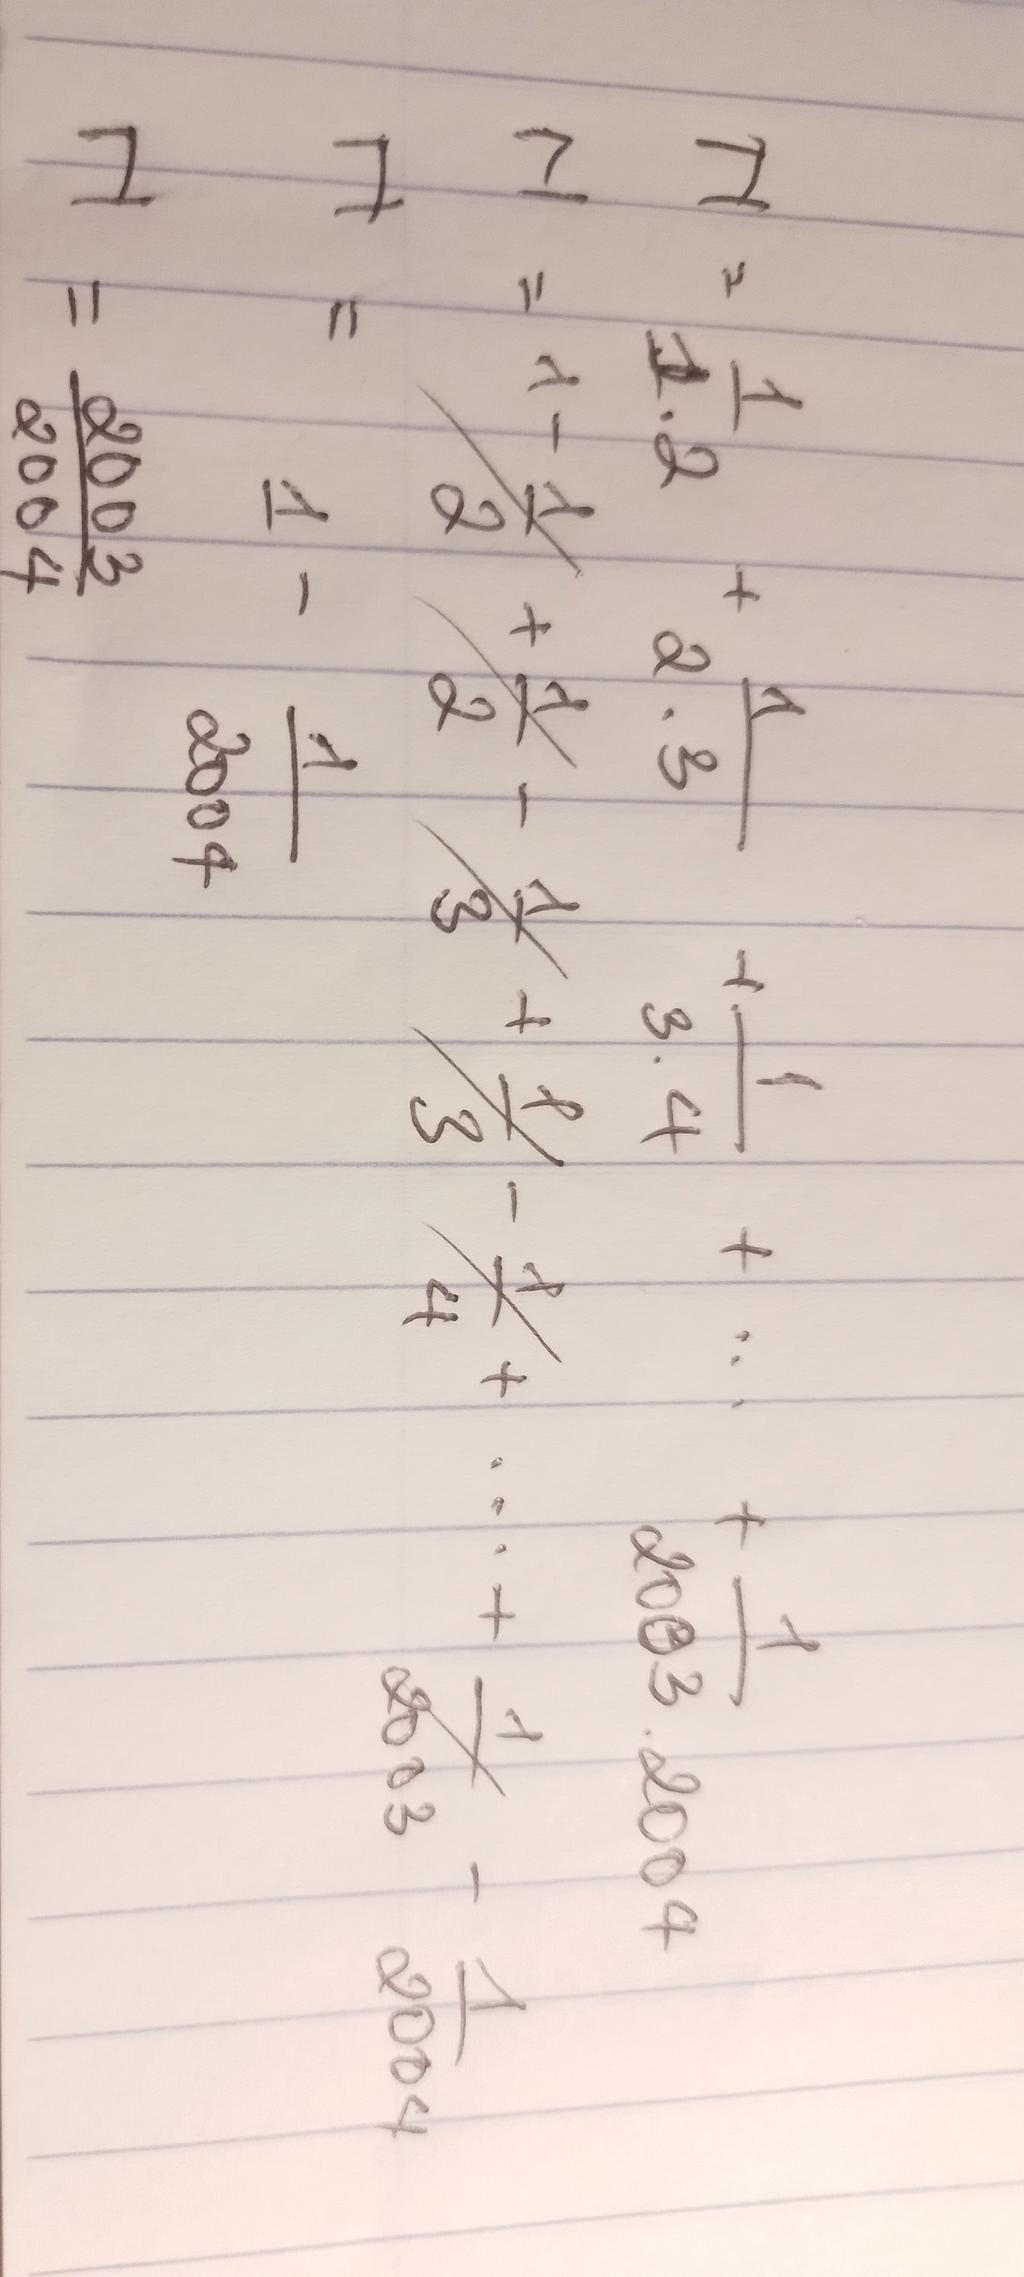 П = 1/1.2 + 1/2.3 + 1/3.4 + ... + 1/2003.2004
П = 1 - 1/2 + 1/2 - 1/3 + 1/3 - 1/4 + .... + 1/2003 - 1/2004
П = 1 - 1/2004
П = 2003/2004